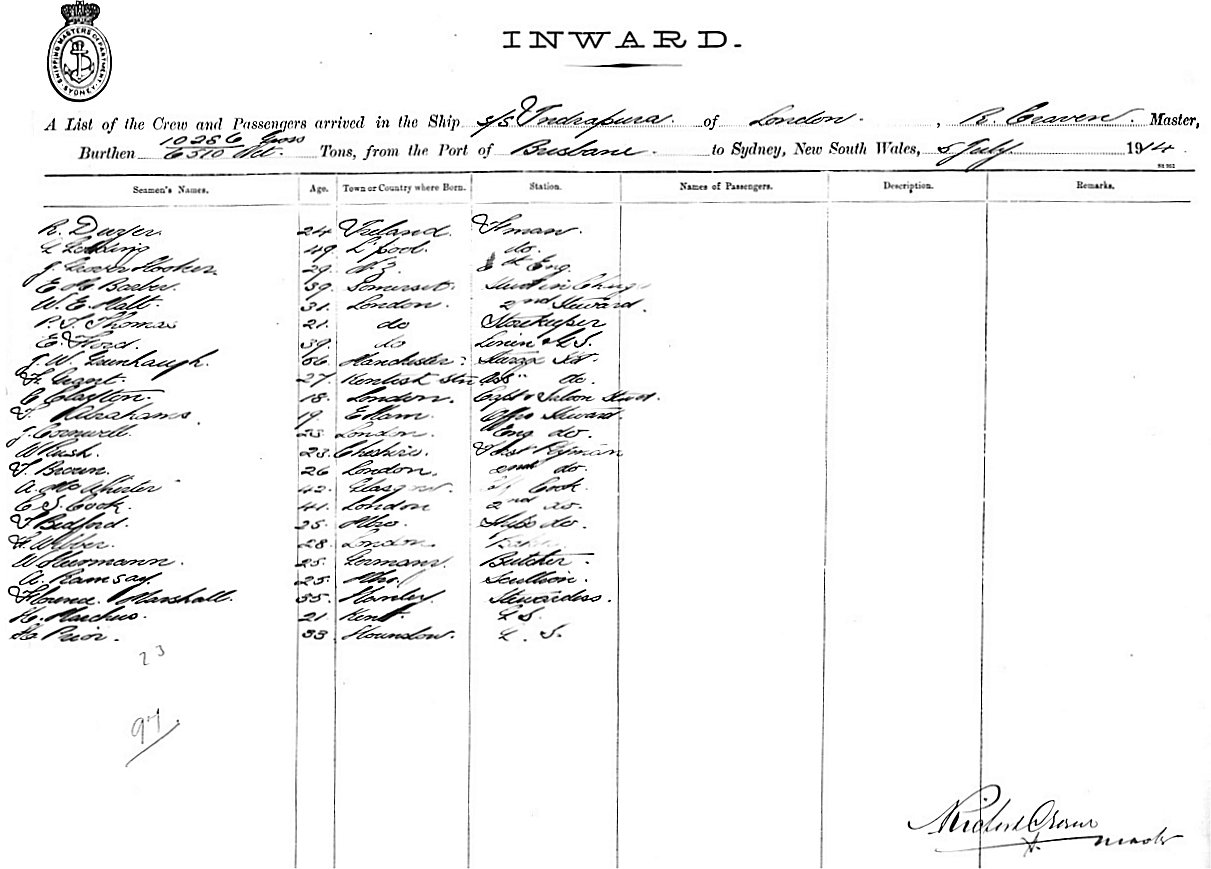 SHIPPING MASTERS DEPARTMENT SYDNEY
INWARD.
A List of the Crew and Passengers arrived in the Ship s/s Indrapura of London, R. Craven Master,
Burthen 10286 Gross 6510 Net. Tons, from the Port of Brisbane to Sydney, New South Wales, 5 July 1914
Seamen's Names. Age. Town or Country where Born. Station. Names of Passengers. Description. Remarks.
R. 24 Ireland. F'man.
G. Golding 49 L'pool. do.
J. Hooker. 29. N.Z. 5th Eng.
E. H. Barber. 39. Somerset.
W. E. Matt. 31. London. 2nd Steward.
P. J. Thomas 21. do Storekeeper
E. Ford. 39. do Linen & G.S.
J. W. Greenhaugh. 66 Manchester
F. Grant. 27. Kentish Ass do.
C. Clayton. 18. London. Capt & Saloon Stwd.
F. Abrahams. 19 Steward
J. Cornwell. 23. London. Eng do.
W Rush. 23. Cheshire.
F. Brown. 26 London. 2nd do.
A. McWhister 42. Cook.
C. S. Cook. 41. London 2nd do.
F. Bedford. 25. Ships do.
F. Webber. 28. London
W Hurmann. 25. Germany. Butcher
A. Ramsay. 25. Scullion.
Florence Marshall. 55. Hanley. Stewardess.
H. Marchus. 21. Kent. G S.
H. Prior. 33 Hounslow. G. S.
23
97.
Richard Craven
Master